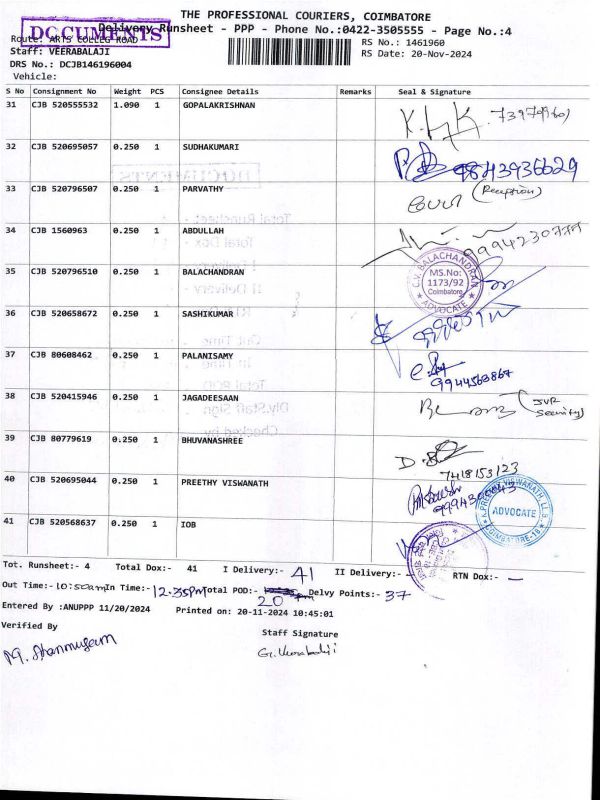 THE PROFESSIONAL COURIERS, COIMBATORE
DOCUMENTS
Delivery Runsheet - PPP - Phone No.:0422-3505555 - Page No.:4
Route: ARTS COLLEG ROAD
RS No.: 1461960
Staff: VEERABALAJI
RS Date: 20-Nov-2024
DRS No.: DCJB146196004
Vehicle:
S No Consignment No Weight PCS Consignee Details Remarks Seal & Signature
31 CJB 520555532 1.090 1 GOPALAKRISHNAN
32 CJB 520695057 0.250 1 SUDHAKUMARI 9843936629
33 CJB 520796507 0.250 1 PARVATHY (Reception)
34 CJB 1560963 0.250 1 ABDULLAH
35 CJB 520796510 0.250 1 BALACHANDRAN
C.V. BALACHANDRAN
MS.No:
1173/92
Coimbatore
ADVOCATE
36 CJB 520658672 0.250 1 SASHIKUMAR
37 CJB 80608462 0.250 1 PALANISAMY
9944563867
38 CJB 520415946 0.250 1 JAGADEESAAN (JVR Security)
39 CJB 80779619 0.250 1 BHUVANASHREE
7418153123
40 CJB 520695044 0.250 1 PREETHY VISWANATH
ADVOCATE
COIMBATORE-18
41 CJB 520568637 0.250 1 IOB
Tot. Runsheet:- 4 Total Dox:- 41 I Delivery:- 41 II Delivery:- — RTN Dox:- —
Out Time:- 10:50am In Time:- 12.35PM Total POD:- 20 Delvy Points:- 37
Entered By :ANUPPP 11/20/2024 Printed on: 20-11-2024 10:45:01
Verified By
Staff Signature
M. Shanmugam
G. Veerabalaji